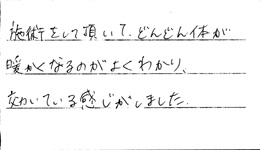 施術をして頂いて、どんどん体が
暖かくなるのがよくわかり、
効いている感じがしました。